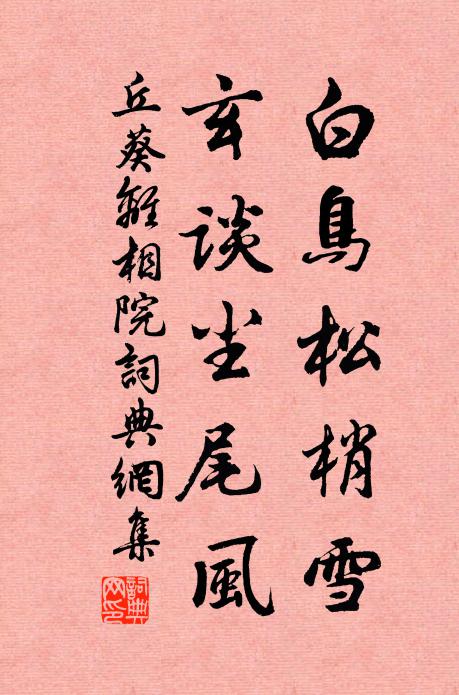 白鳥松梢雪
玄談尘尾風
丘葵離相院詞典網集
詞典网印